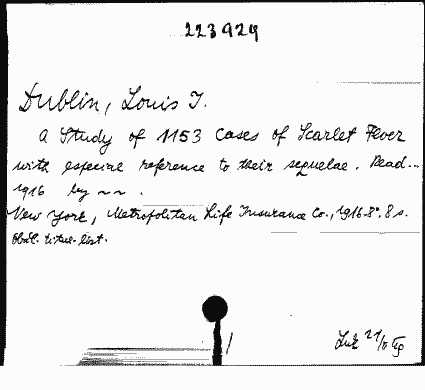 223929
Dublin, Louis I.
A Study of 1153 cases of Scarlet Fever
with especial reference to their sequelae. Read...
1916 by ~~.
New York, Metropolitan Life Insurance Co., 1916. 8°. 8 s.